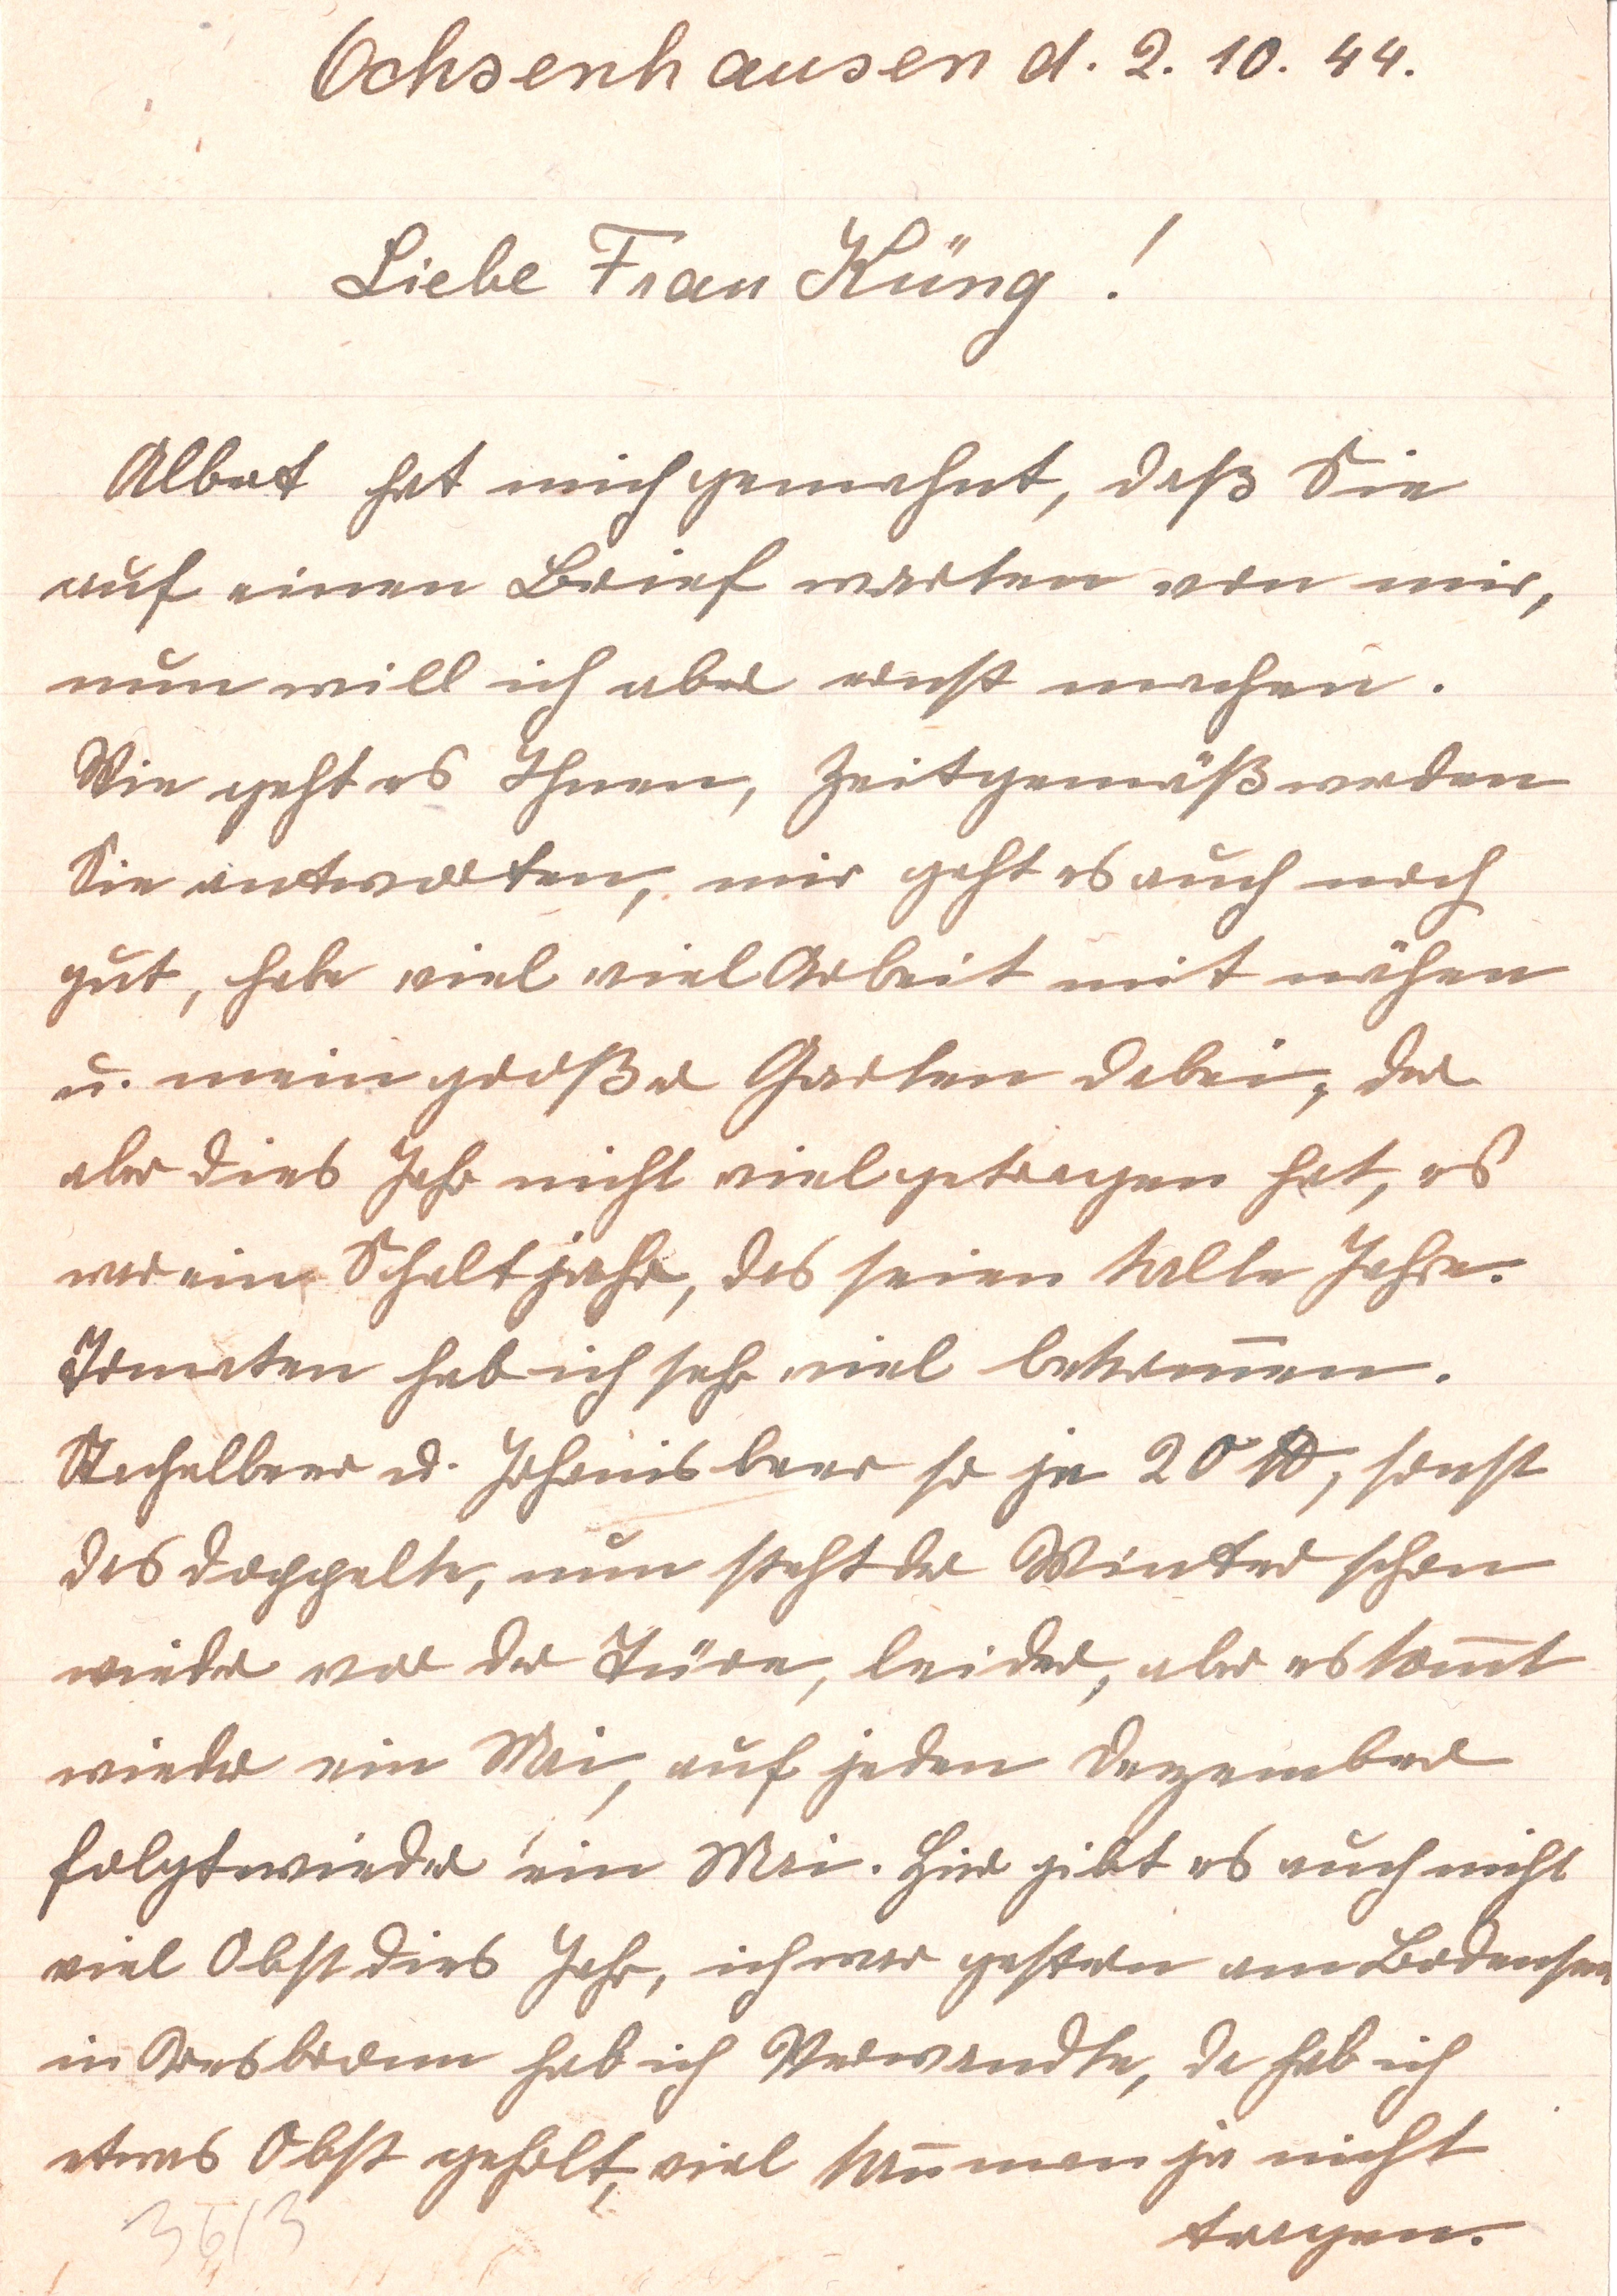 Ochsenhausen d. 2. 10. 44.
Liebe Frau Küng!
Albert hat mich gemahnt, daß Sie
auf einen Brief warten von mir,
nun will ich aber ernst machen.
Wie geht es Ihnen, Zeitgemäß werden
Sie antworten, mir geht es auch noch
gut, habe viel viel Arbeit mit nähen
u. mein großer Garten dabei, der
aber dies Jahr nicht viel getragen hat, es
war ein Schaltjahr, das seien kalte Jahre.
Tomaten hab ich sehr viel bekom̅en.
Stachelbeer u. Johanisbeer so je 20 ℔, sonst
das doppelte, nun steht der Winter schon
wieder vor der Türe, leider, aber es kom̅t
wieder ein Mai, auf jeden Dezember
folgt wieder ein Mai. Hier gibt es auch nicht
viel Obst dies Jahr, ich war gestern am Bodensee
in hab ich Verwandte, da hab ich
etwas Obst geholt, viel kan̅ man ja nicht
tragen.
36/3